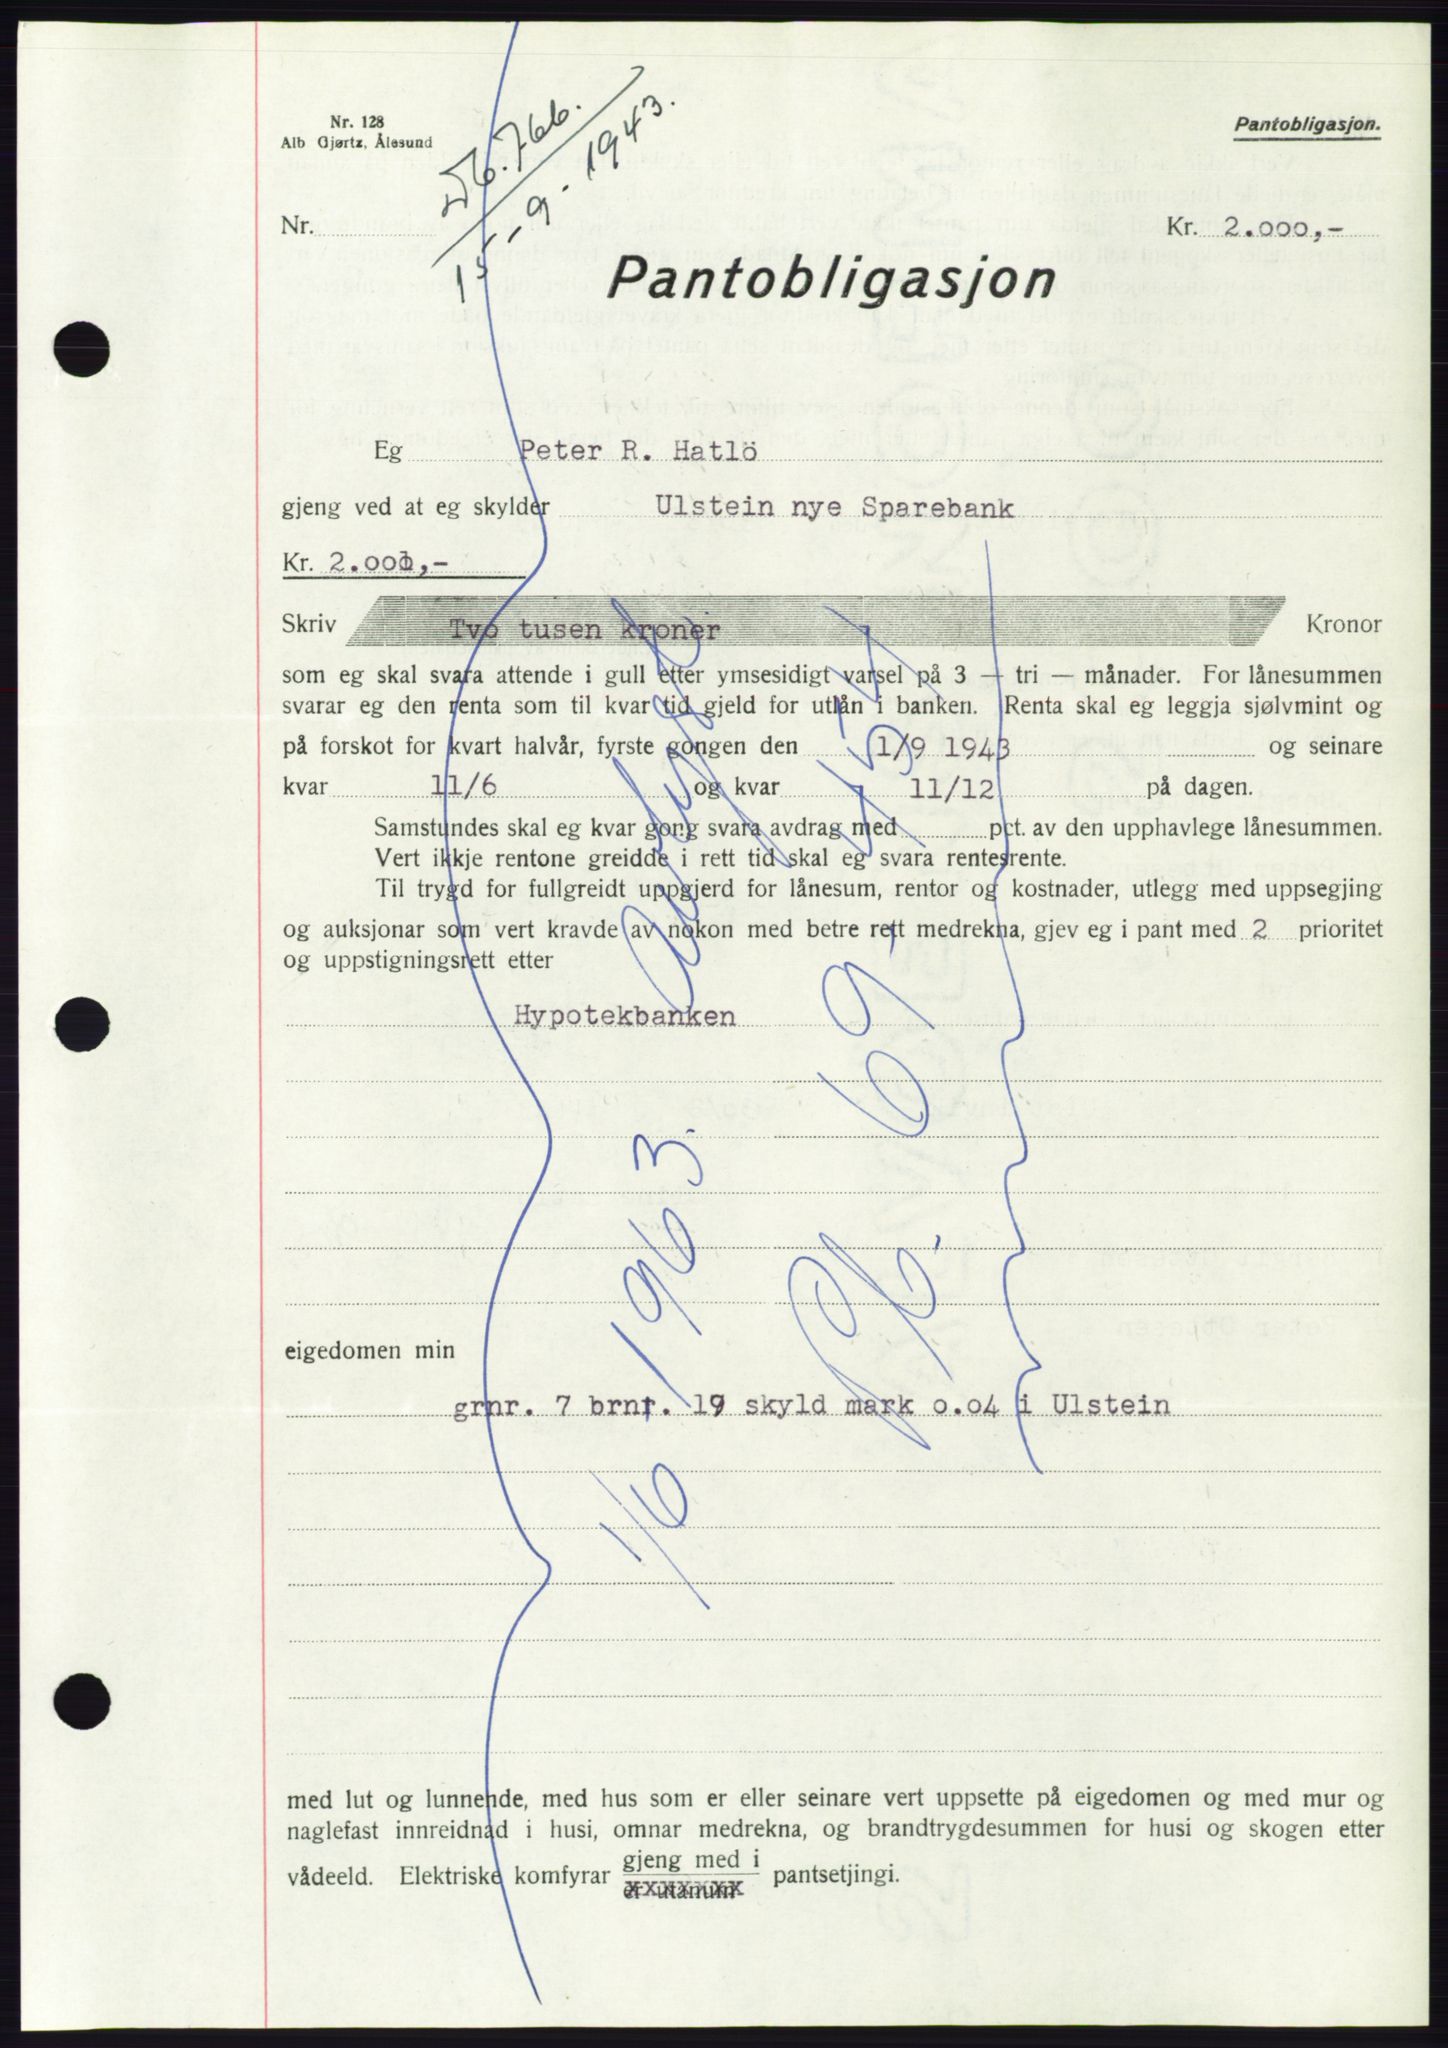 Nr. 128
Alb Gjørtz, Ålesund
Pantobligasjon.
766.
15-9-1943.
Nr.
Kr. 2.000,-
Pantobligasjon
Eg Peter R. Hatlö
gjeng ved at eg skylder Ulstein nye Sparebank
Kr. 2.000,-
Skriv Tvo tusen kroner Kronor
som eg skal svara attende i gull etter ymsesidigt varsel på 3 — tri — månader. For lånesummen
svarar eg den renta som til kvar tid gjeld for utlån i banken. Renta skal eg leggja sjølvmint og
på forskot for kvart halvår, fyrste gongen den 1/9 1943 og seinare
kvar 11/6 og kvar 11/12 på dagen.
Samstundes skal eg kvar gong svara avdrag med pct. av den upphavlege lånesummen.
Vert ikkje rentone greidde i rett tid skal eg svara rentesrente.
Til trygd for fullgreidt uppgjerd for lånesum, rentor og kostnader, utlegg med uppsegjing
og auksjonar som vert kravde av nokon med betre rett medrekna, gjev eg i pant med 2 prioritet
og uppstigningsrett etter
Hypotekbanken
avlyst
1/6 1963.
Pb. 69
eigedomen min
grnr. 7 brnr. 19 skyld mark 0.04 i Ulstein
med lut og lunnende, med hus som er eller seinare vert uppsette på eigedomen og med mur og
naglefast innreidnad i husi, omnar medrekna, og brandtrygdesummen for husi og skogen etter
vådeeld. Elektriske komfyrar gjeng med i pantsetjingi.
er utanum